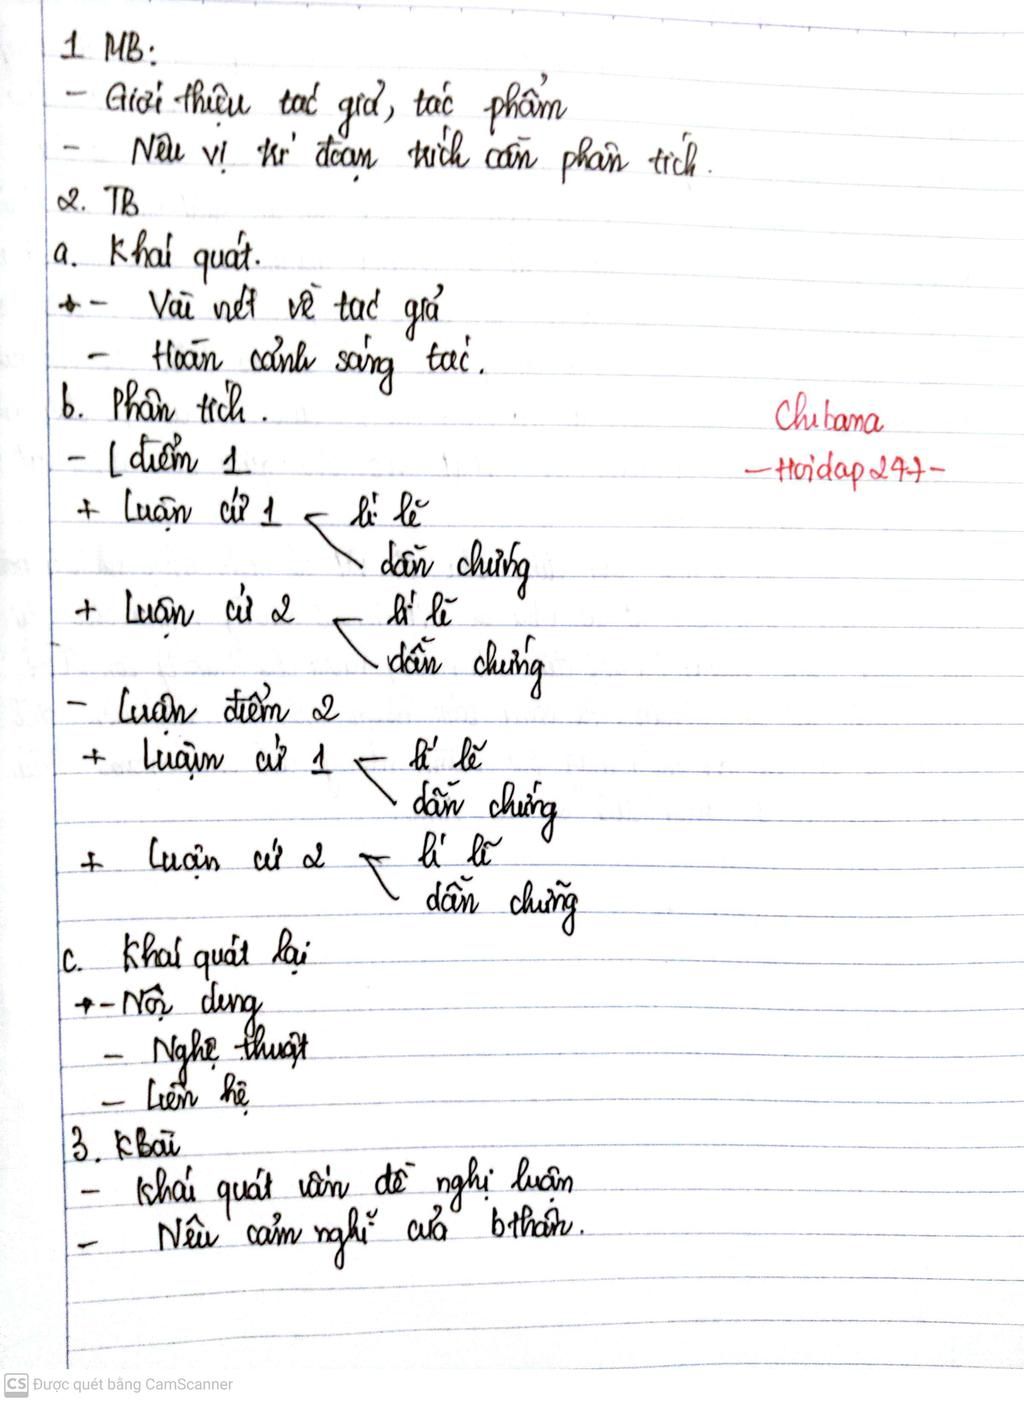 1 MB:
- Giới thiệu tác giả, tác phẩm
- Nêu vị trí đoạn trích cần phân tích.
2. TB
a. Khái quát.
+ - Vài nét về tác giả
- Hoàn cảnh sáng tác.
b. Phân tích.
- L điểm 1
+ Luận cứ 1 lí lẽ
dẫn chứng
+ Luận cứ 2 lí lẽ
dẫn chứng
- Luận điểm 2
+ Luận cứ 1 lí lẽ
dẫn chứng
+ Luận cứ 2 lí lẽ
dẫn chứng
c. Khái quát lại
+ - Nội dung
- Nghệ thuật
- Liên hệ
3. KBài
- Khái quát vấn đề nghị luận
- Nêu cảm nghĩ của bthân.
Chibana
- Hoidap247 -
CS Được quét bằng CamScanner